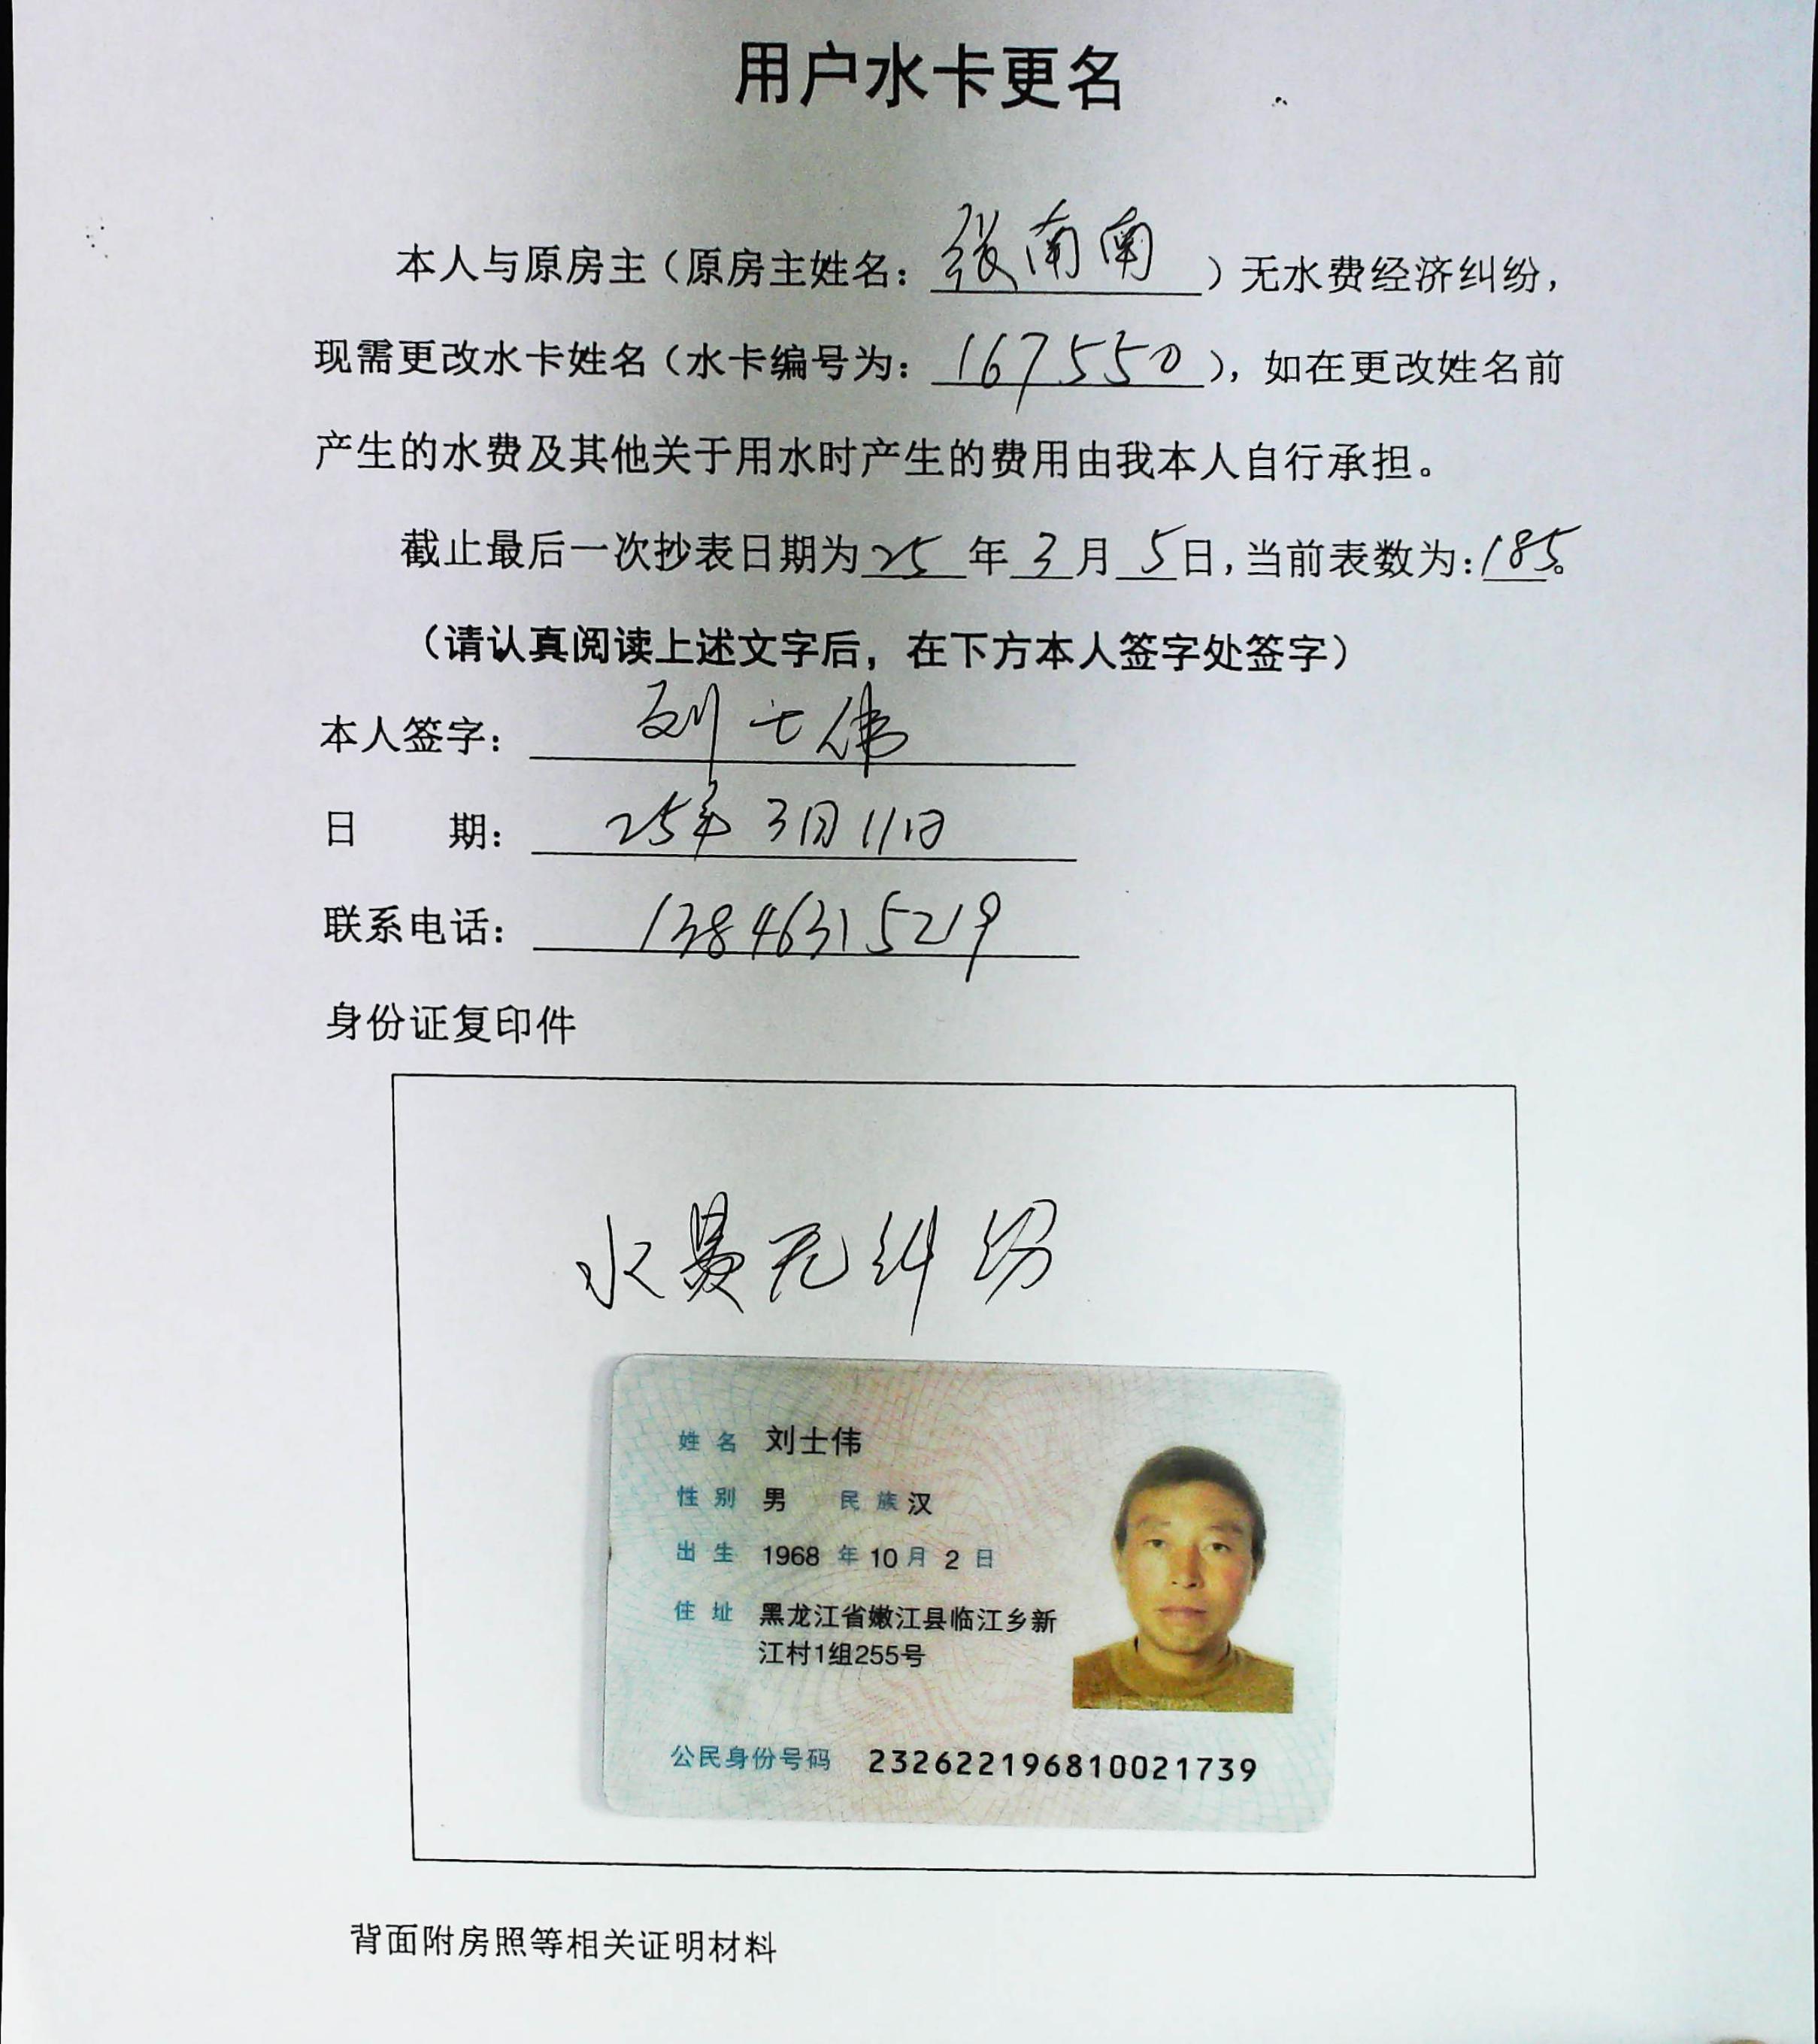 用户水卡更名
本人与原房主（原房主姓名：张南南）无水费经济纠纷，
现需更改水卡姓名（水卡编号为：167550），如在更改姓名前
产生的水费及其他关于用水时产生的费用由我本人自行承担。
截止最后一次抄表日期为25年3月5日，当前表数为：185。
（请认真阅读上述文字后，在下方本人签字处签字）
本人签字：刘士伟
日期：25年3月11日
联系电话：13846315219
身份证复印件
水费无纠纷
姓名 刘士伟
性别 男 民族 汉
出生 1968年10月2日
住址 黑龙江省嫩江县临江乡新
江村1组255号
公民身份号码 232622196810021739
背面附房照等相关证明材料